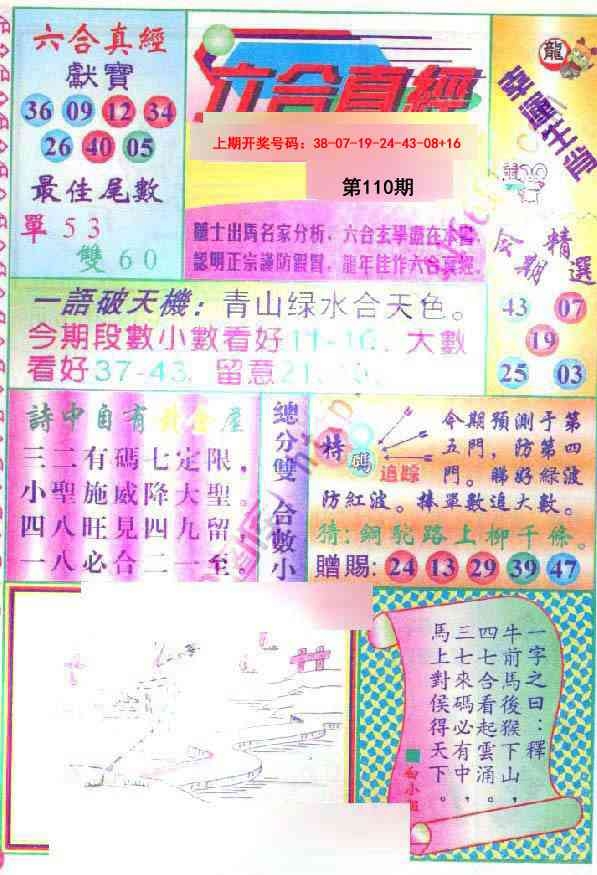 六合真經
獻寶
36 09 12 34
26 40 05
最佳尾數
單 5 3
雙 6 0
六合真經
上期开奖号码：38-07-19-24-43-08+16
第110期
隴士出馬名家分析，六合玄學盡在本書，
認明正宗謹防假冒，龍年佳作六合真經。
龍
幸運生肖
今期精選
43 07
19
25 03
一語破天機：青山绿水合天色。
今期段數小數看好11-16，大數
看好37-43，留意21
詩中自有黃金屋
三二有碼七定限，
小聖施威降大聖。
四八旺見四九留，
一八必合二一至。
總分雙 合數小
特碼
追踪
今期預測于第
五門，防第四
門。睇好綠波
防紅波。捧單數追大數。
猜：銅駝路上柳千條。
贈賜：24 13 29 39 47
一字之曰：釋
牛前馬後猴下山，
四七合看起雲涌。
三七來碼必有中，
馬上對侯得天下。